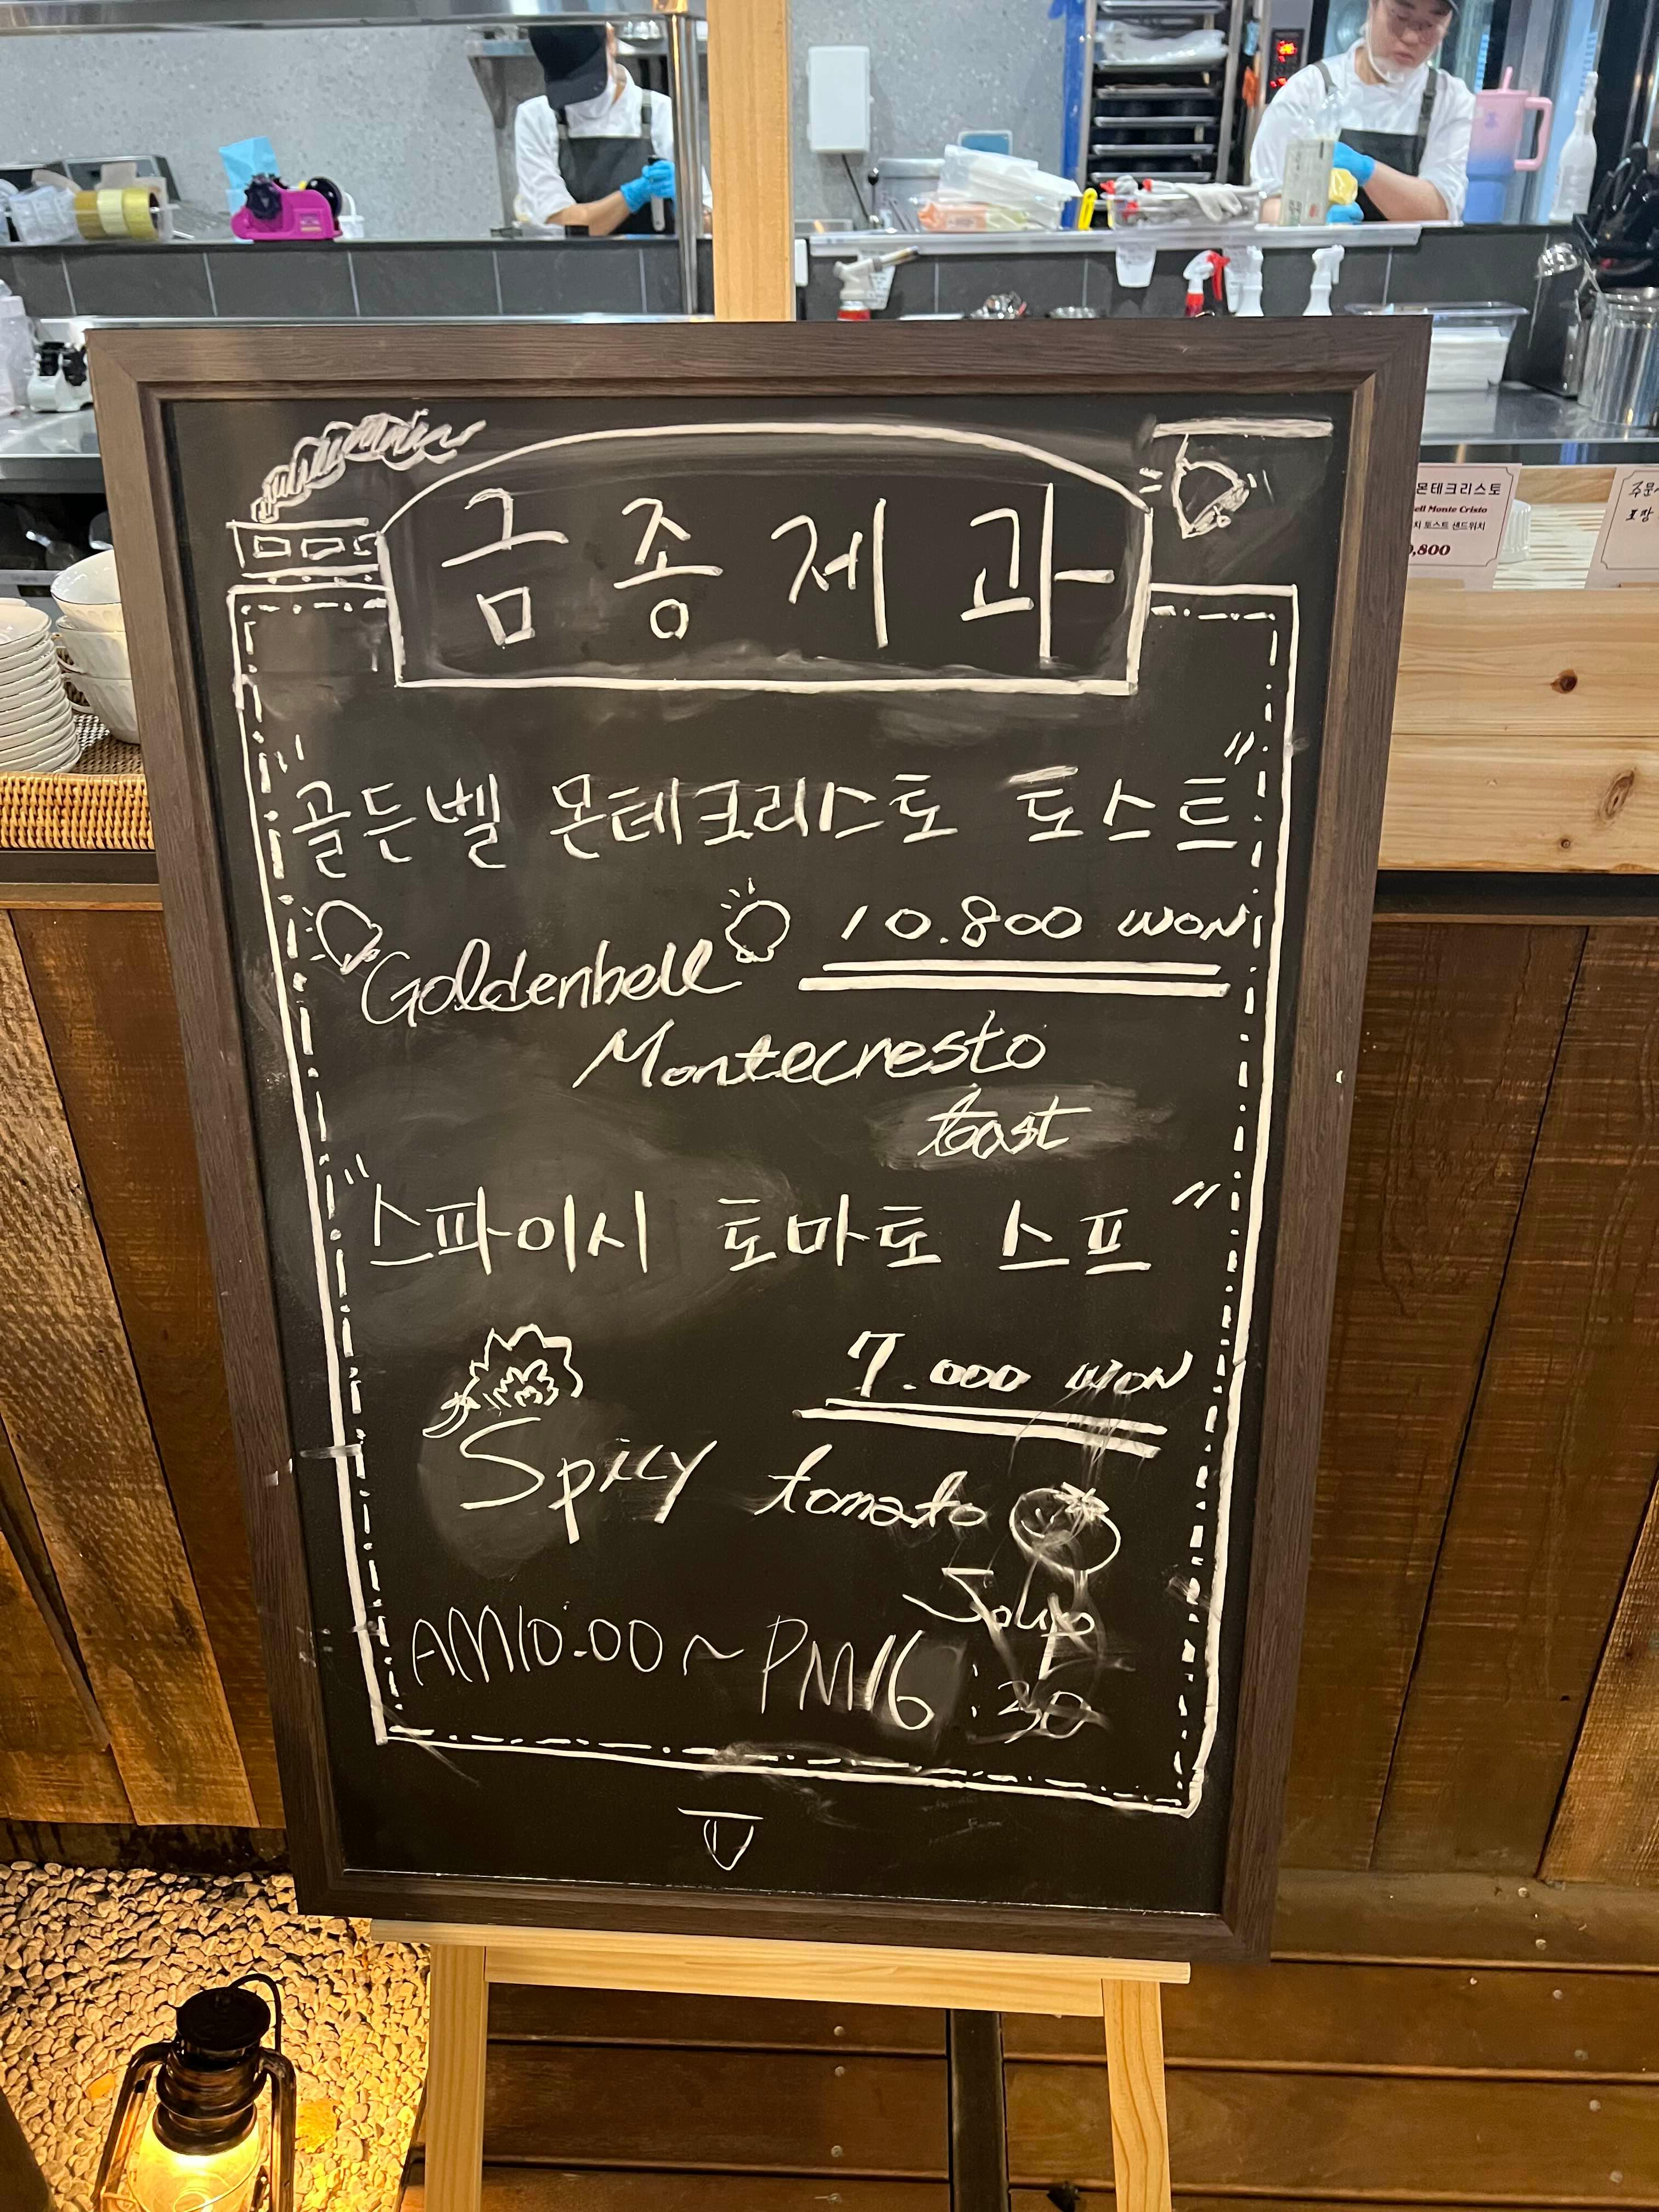 금종제과
"골든벨 몬테크리스토 토스트"
10.800 WON
Goldenbell
Montecresto
toast
"스파이시 토마토 스프"
7.000 WON
Spicy tomato
Soup
AM10:00~PM16:30
몬테크리스토
ell Monte Cristo
치 토스트 샌드위치
,800
포장